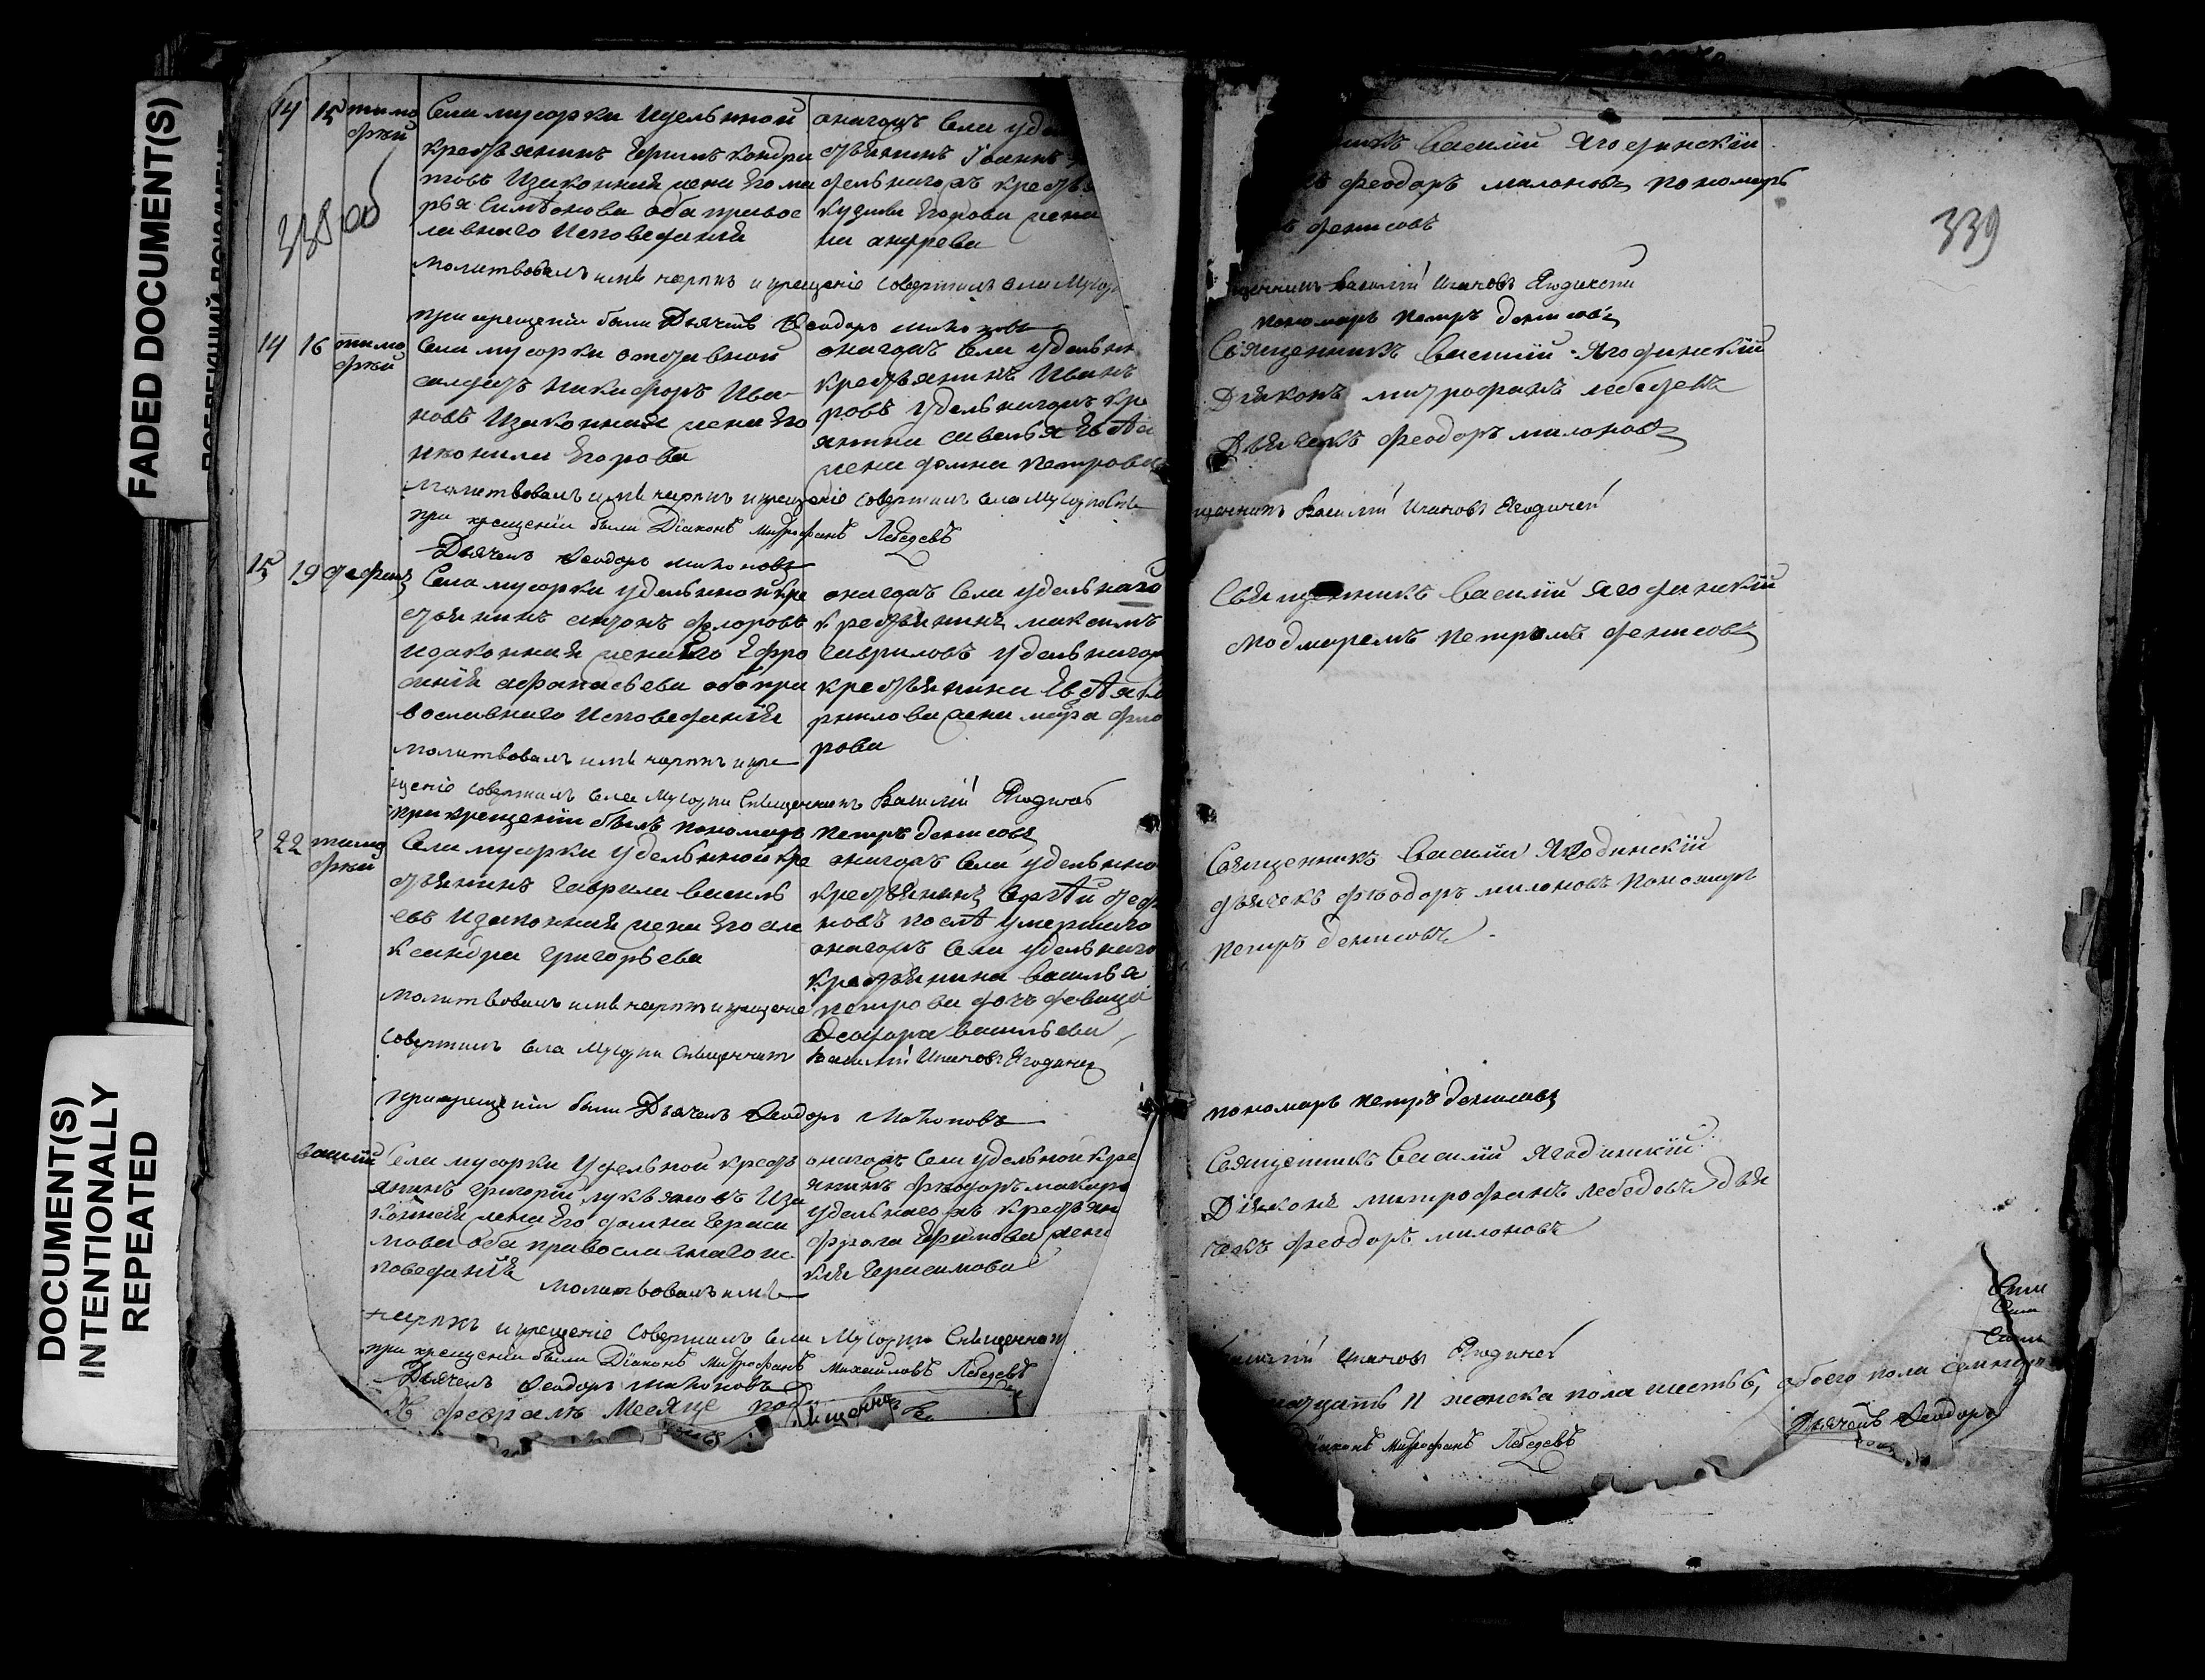 FADED DOCUMENT(S)
DOCUMENT(S)
INTENTIONALLY
REPEATED
338 об
14 15 тимо
фѣй
Села мусорки Удельной
крестьянинъ Ефимъ Кондра
товъ Изаконная жена Его ма
рья Симѣонова оба правос
лавнаго Исповеданія
онагожъ Села уде
стьянинъ Іоаннъ
дельнагожъ крестья
кузмы Егорова жена
на андрева
молитвовалъ имѣ нарекъ и крещеніе Совершилъ Села Мусор
при крещеніи были Дьячекъ Феодоръ Милоновъ
14 16 тимо
фѣй
Села мусорки отставной
салдатъ Никифоръ Ива-
новъ Изаконная жена Его
Егорова
онагожъ Села удельн
крестьянинъ Иванъ
ровъ удельнагожъ кре
янина савелья
жена домна петрова
молитвовалъ имѣ нарекъ и крещеніе Совершилъ Села Мусорки
при крещеніи были Діаконъ Митрофанъ Лебедевъ
Дьячекъ Феодоръ Милоновъ
15 19
Села мусорки удельной кре
стьянинъ антонъ флоровъ
изаконная жена Его Ефро
синія афанасьева обаправ
вославнаго Исповеданія
онагожъ Села удельнаго
крестьянинъ максимъ
Гавриловъ удельнагож
крестьянина
жена марфа фло
рова
молитвовалъ имѣ нарекъ и кре
щеніе Совершилъ Села Мусорки Священникъ Василій
при крещеніи былъ пономарь Петръ Денисовъ
22 тимо
фѣй
Села мусорки удельной кре
стьянинъ Гаврила василь
евъ Изаконная жена Его але
ксандра Григорьева
онагожъ Села удельно
крестьянинъ Сергѣй
новъ послѣ умершаго
онагожъ Села удельнаго
крестьянина василья
петрова дочь девица
Феодора васильева
молитвовалъ имѣ нарекъ и крещеніе
Совершилъ Села Мусорки Священникъ Василій Ивановъ Ягодинск
при крещеніи были Дьячекъ Феодоръ Милоновъ
василій
Села мусорки Удельной крестъ
янинъ Григорій лукьяновъ Иза
конная жена Его домна Гераси
мова оба православнаго ис
поведанія
онагожъ Села удельной кре
янинъ феодоръ макаро
удельнагожъ крестьян
фрола Ефимова жена
Герасимова
молитвовалъ имѣ
нарекъ и крещеніе Совершилъ Села Мусорки Священник
при крещеніи были Діаконъ Митрофанъ Михаиловъ Лебедевъ
Дьячекъ Феодоръ Милоновъ
Въ февралѣ Месяце
339
никъ Василій Ягодинскій
феодоръ милоновъ пономарь
денисовъ
щенникъ Василій Ивановъ Ягодинскій
пономарь петръ денисовъ
Священникъ василій Ягодинскій
Діаконъ митрофанъ лебедевъ
Дьячекъ феодоръ милоновъ
щенникъ Василій Ивановъ Ягодинскій
Священникъ василій Ягодинскій
Петромъ денисовъ
Священникъ Василій Ягодинскій
дьячекъ феодоръ милоновъ пономарь
петръ денисовъ
пономарь петръ денисовъ
Священникъ Василій Ягодинскій
Діаконъ митрофанъ лебедевъ дья
чекъ феодоръ милоновъ
Ивановъ Ягодинскій
11 женска пола шесть 6, обоего пола
Діаконъ Митрофанъ Лебедевъ
Дьячекъ Феодоръ